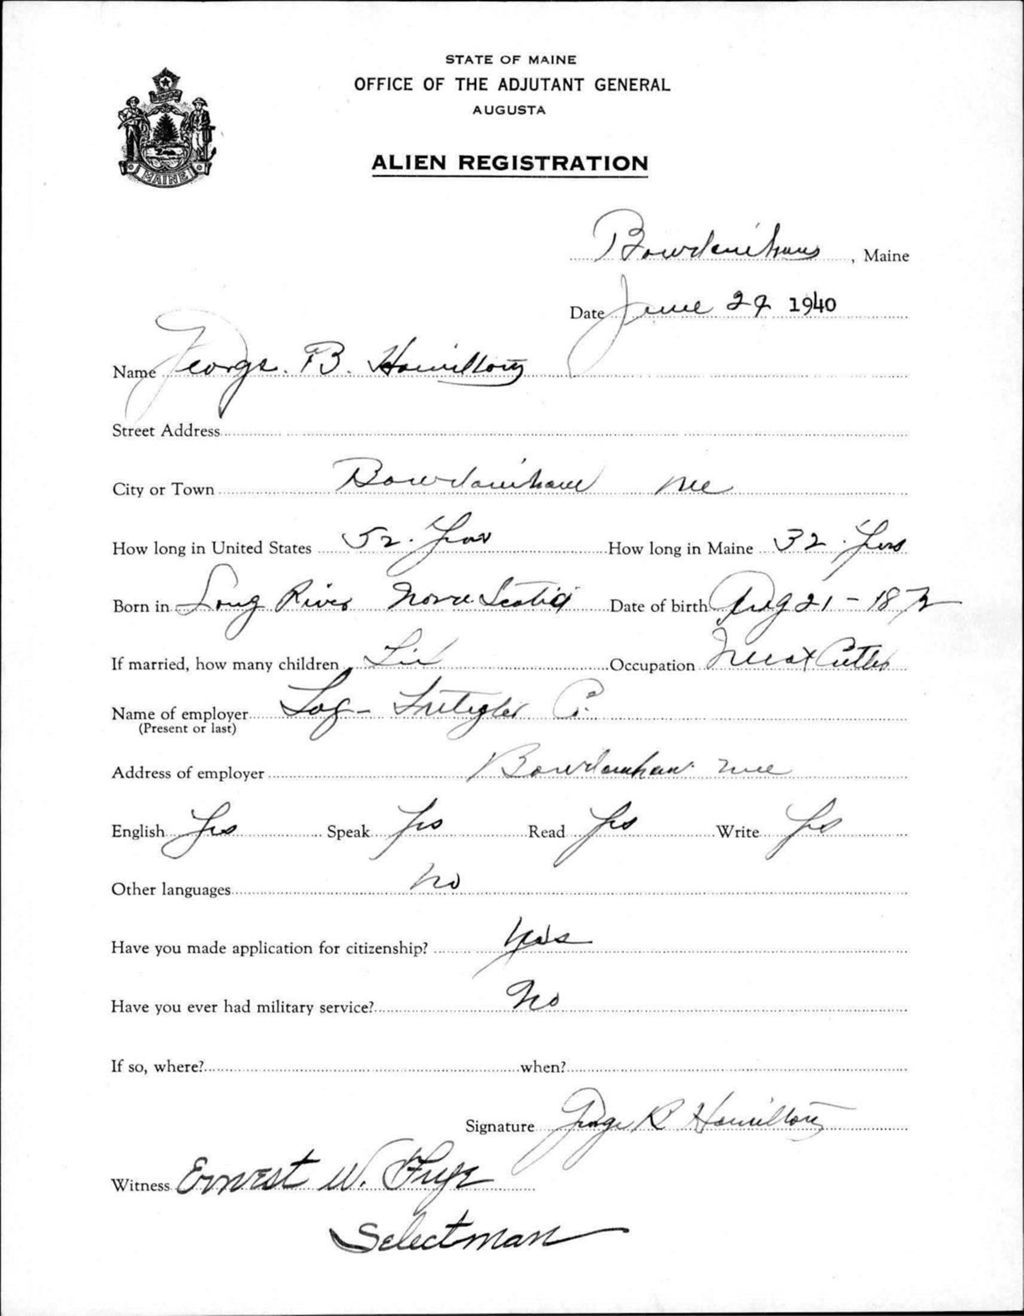 STATE OF MAINE
OFFICE OF THE ADJUTANT GENERAL
AUGUSTA
MAINE
ALIEN REGISTRATION
Bowdoinham, Maine
Date June 29 1940
Name George. B. Hamilton
Street Address
City or Town Bowdoinham Me
How long in United States 52. Years How long in Maine 32. Yrs
Born in Long River Nova Scotia Date of birth Aug 21 - 1872
If married, how many children Occupation Meat Cutter
Name of employer Co.
(Present or last)
Address of employer Bowdoinham Me
English Yes Speak Yes Read Yes Write Yes
Other languages No
Have you made application for citizenship? Yes
Have you ever had military service? No
If so, where? when?
Signature George B Hamilton
Witness Ernest W. Frye
Selectman